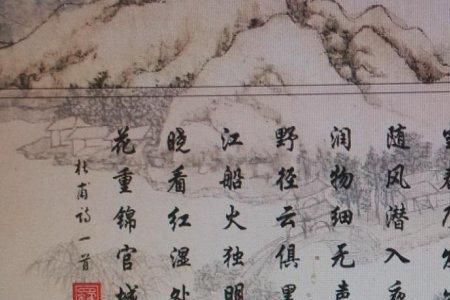 随风潜入夜
润物细无声
野径云俱黑
江船火独明
晓看红湿处
花重锦官城
杜甫诗一首